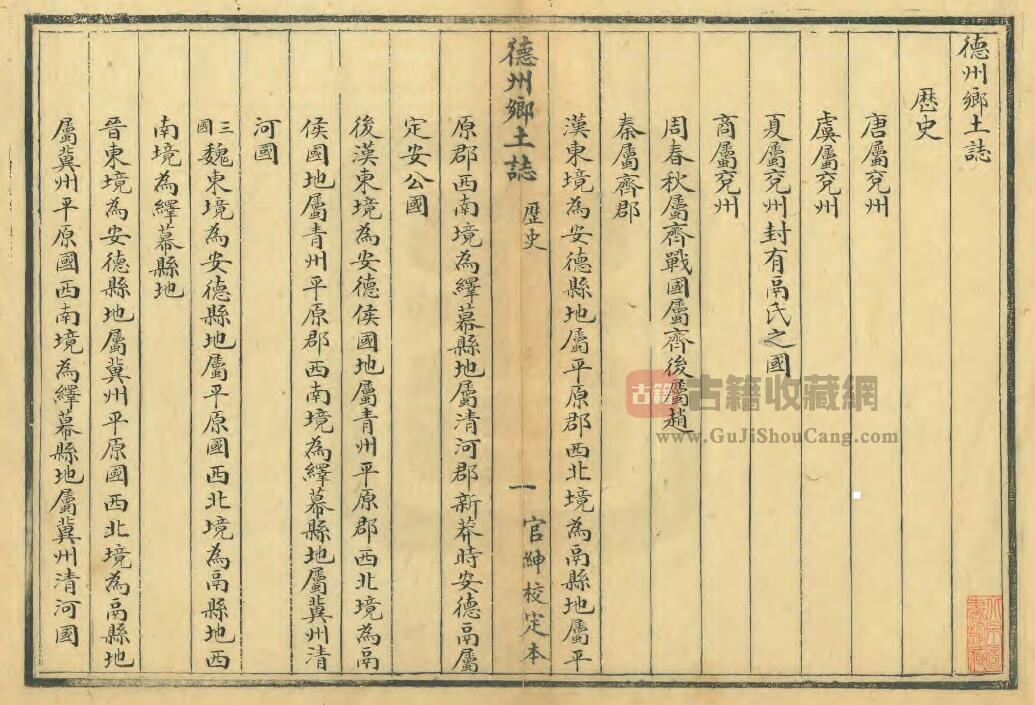 德州鄉土誌
歷史
唐屬兗州
虞屬兗州
夏屬兗州封有鬲氏之國
商屬兗州
周春秋屬齊戰國屬齊後屬趙
秦屬齊郡
漢東境為安德縣地屬平原郡西北境為鬲縣地屬平
德州鄉土誌 歷史 一 官紳校定本
原郡西南境為繹幕縣地屬清河郡新莽時安德鬲屬
定安公國
後漢東境為安德侯國地屬青州平原郡西北境為鬲
侯國地屬青州平原郡西南境為繹幕縣地屬冀州清
河國
三國魏東境為安德縣地屬平原國西北境為鬲縣地西
南境為繹幕縣地
晉東境為安德縣地屬冀州平原國西北境為鬲縣地
屬冀州平原國西南境為繹幕縣地屬冀州清河國
古籍
古籍收藏網
www.GuJiShouCang.com